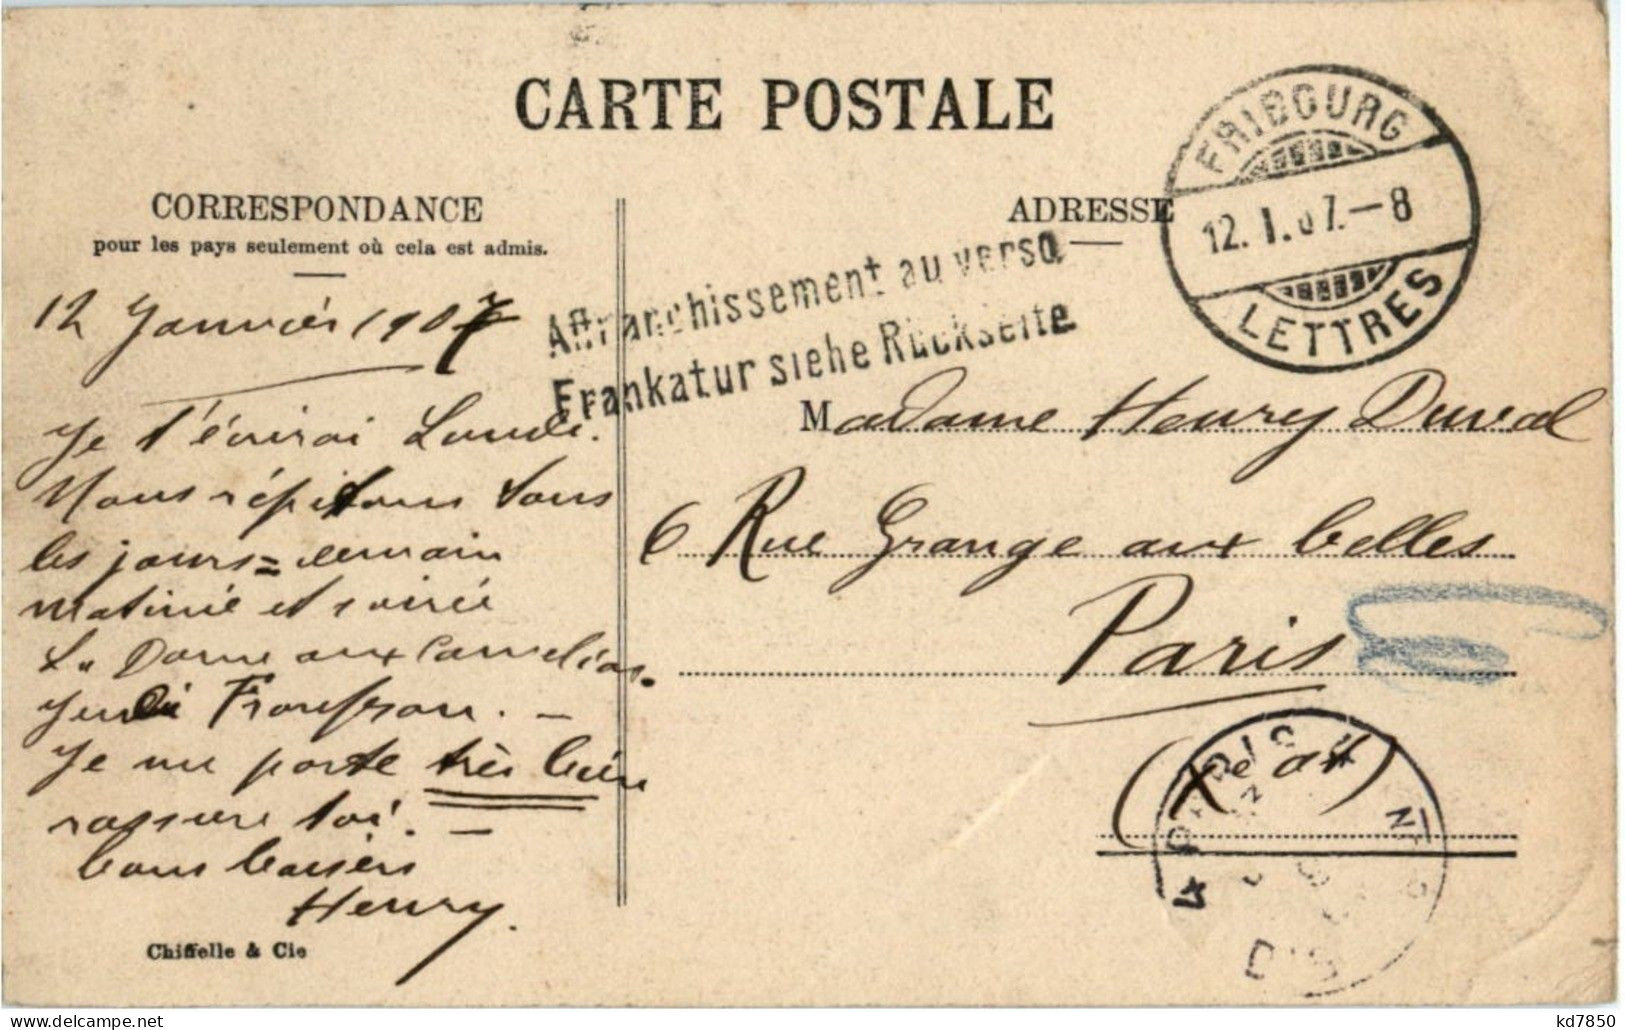 CARTE POSTALE
CORRESPONDANCE
pour les pays seulement où cela est admis.
ADRESSE
FRIBOURG
12. I. 07.—8
LETTRES
Affranchissement au verso
Frankatur siehe Rückseite
12 Janvier 1907
Je t'écrirai Lundi.
Nous répétons tous
les jours = demain
matinée et soirée
La Dame aux Camélias.
Jeudi Froufrou. —
Je me porte très bien
rassure toi. —
bons baisers
Henry.
Chiffelle & Cie
Madame Henry Duval
6 Rue Grange aux belles
Paris
(Xe arr)
PARIS
kd7850